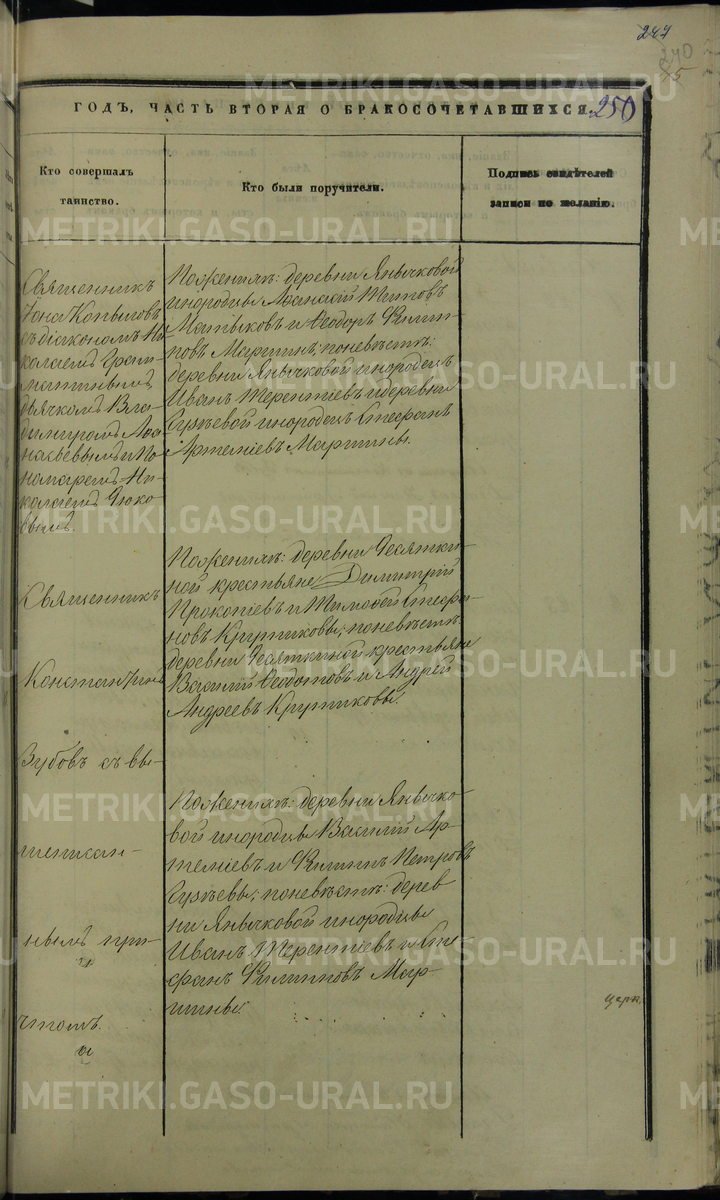 247
240
85
ГОДЪ, ЧАСТЬ ВТОРАЯ О БРАКОСОЧЕТАВШИХСЯ. 250
Кто совершалъ
таинство.
Кто были поручители.
Подпись свидѣтелей
записи по желанію.
Священникъ
Іона Копыловъ
съ діакономъ Ни
колаемъ Грам
матинымъ
дьячкомъ Вла
диміромъ Аѳа
насьевымъ и По
номаремъ Ни
колаемъ
Поженихѣ: деревни Янычковой
инородцы Аѳанасій Титовъ
и Ѳеодоръ Филип
повъ Маршинъ; поневѣстѣ:
деревни Янычковой инородецъ
Иванъ Терентіевъ и деревни
инородецъ Стефанъ
Артеміевъ Маршины.
Священникъ
Константинъ
Зубовъ съ вы-
шеписан-
нымъ при-
чтомъ.
Поженихѣ: деревни Десятки
ной крестьяне Димитрій
Прокопіевъ и Тимоѳей Стефа
новъ Крутиковы; поневѣстѣ
деревни Десяткиной крестьяне
Василій Ѳедотовъ и Андрей
Андреевъ Крутиковы.
Поженихѣ: деревни Янычко
вой инородцы Василій Ар-
теміевъ и Филиппъ Петровъ
поневѣстѣ: дерев
ни Янычковой инородцы
Иванъ Терентіевъ и Сте
фанъ Филипповъ Мар-
шины.
церк.
METRIKI.GASO-URAL.RU